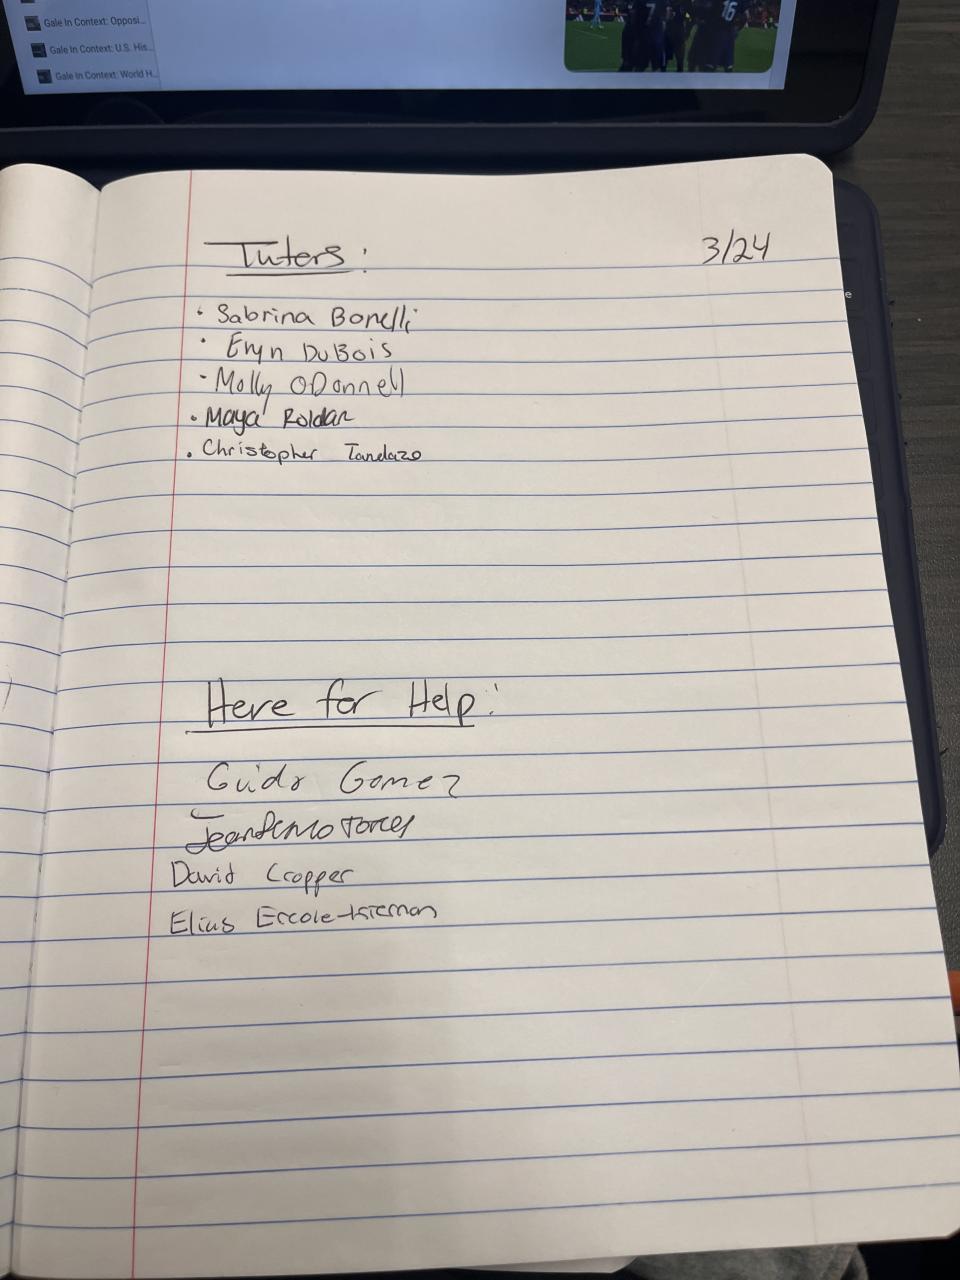 Gale In Context: Opposi...
Gale In Context: U.S. His...
Gale In Context: World H...
7
16
e
Tuters:
3/24
· Sabrina Bonelli
· Eryn DuBois
- Molly ODonnell
· Maya Roldan
. Christopher Tandazo
Here for Help:
Guido Gomez
Torres
David Cropper
Elias Ercole-Kiernan